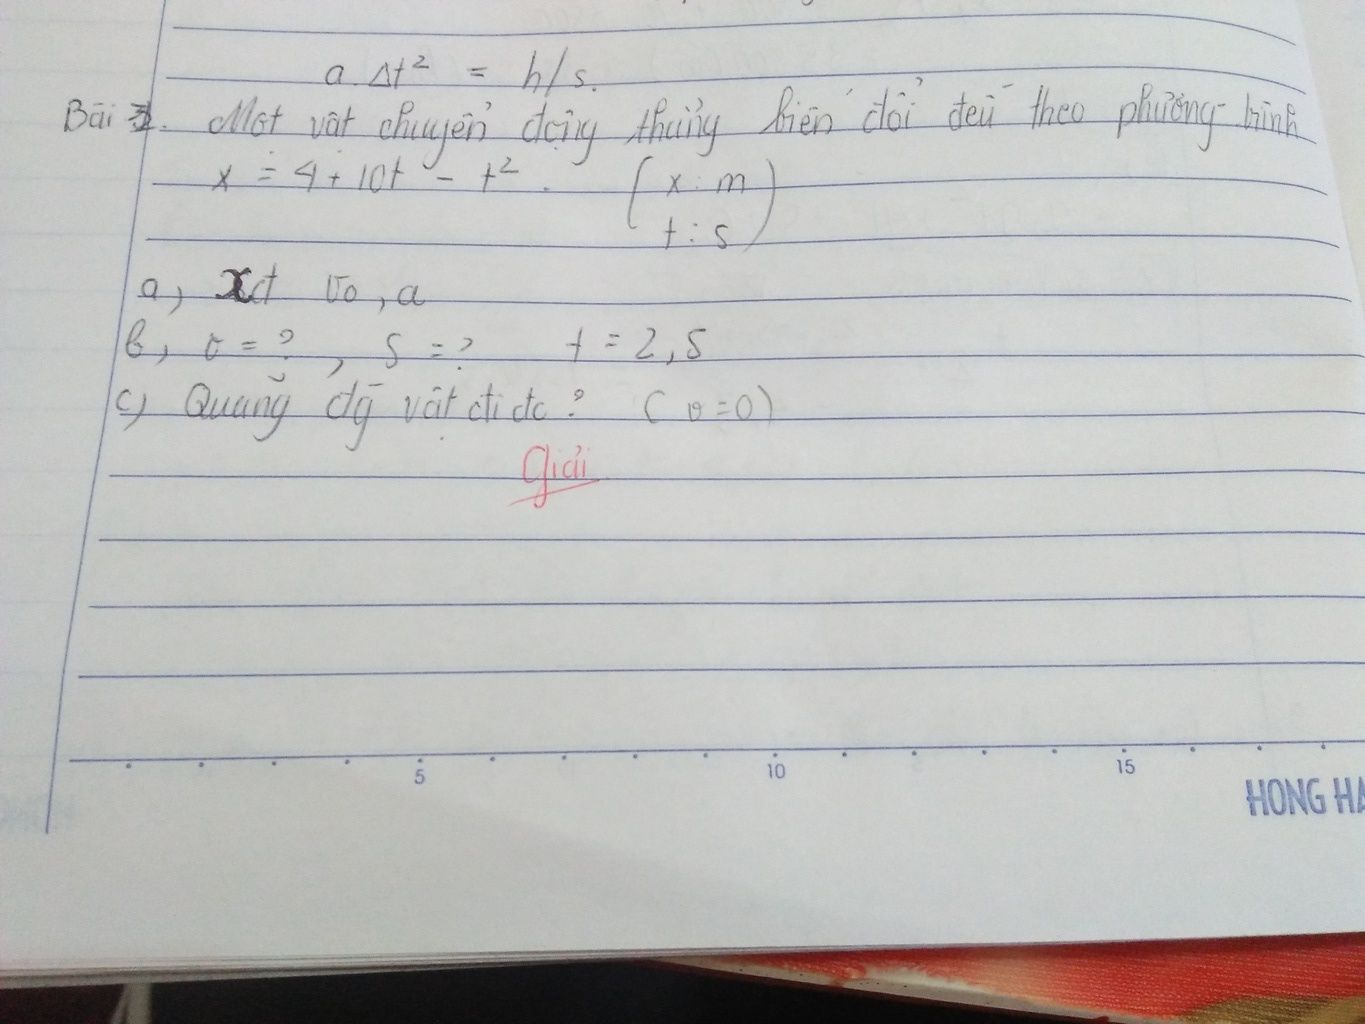 a. Δt² = h/s.
Bài 3. Một vật chuyển động thẳng biến đổi đều theo phương trình
x = 4 + 10t - t². (x : m
t : s)
a, xđ v₀, a
b, v = ?, s = ? t = 2,5
c) Quãng đg vật đi đc ? (v = 0)
Giải
5 10 15
HONG HA